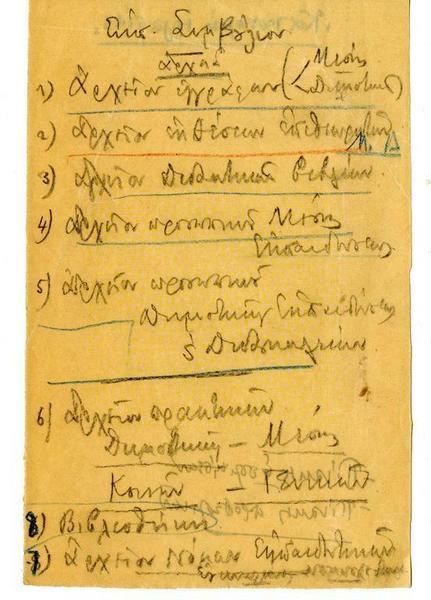 Εκπ. Συμβούλιον
Αρχεία
1) Αρχείον εγγράφων (Μέσης
Δημοτικής)
2) Αρχείον εκθέσεων επιθεωρητών
Μ. Δ
3) Αρχείον Διδακτικών βιβλίων.
4) Αρχείον προσωπικού Μέσης
Εκπαιδεύσεως
5) Αρχείον προσωπικού
Δημοτικής Εκπαιδεύσεως
& Διδασκαλείων
6) Αρχείον πρακτικών
Δημοτικής – Μέσης
Κοινών –
8) Βιβλιοθήκης
7) Αρχείον Νόμων Εκπαιδευτικών